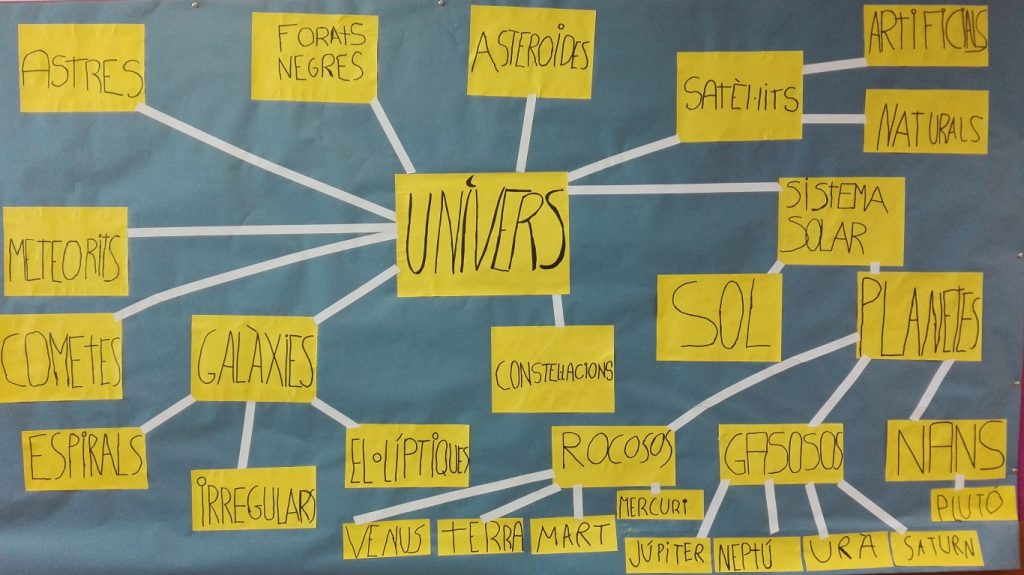 ASTRES
FORATS
NEGRES
ASTEROIDES
SATÈL·LITS
ARTIFICIALS
NATURALS
UNIVERS
SISTEMA
SOLAR
METEORITS
COMETES
GALÀXIES
CONSTEL·LACIONS
SOL
PLANETES
ESPIRALS
IRREGULARS
EL·LÍPTIQUES
ROCOSOS
GASOSOS
NANS
VENUS
TERRA
MART
MERCURI
JÚPITER
NEPTÚ
URÀ
SATURN
PLUTÓ